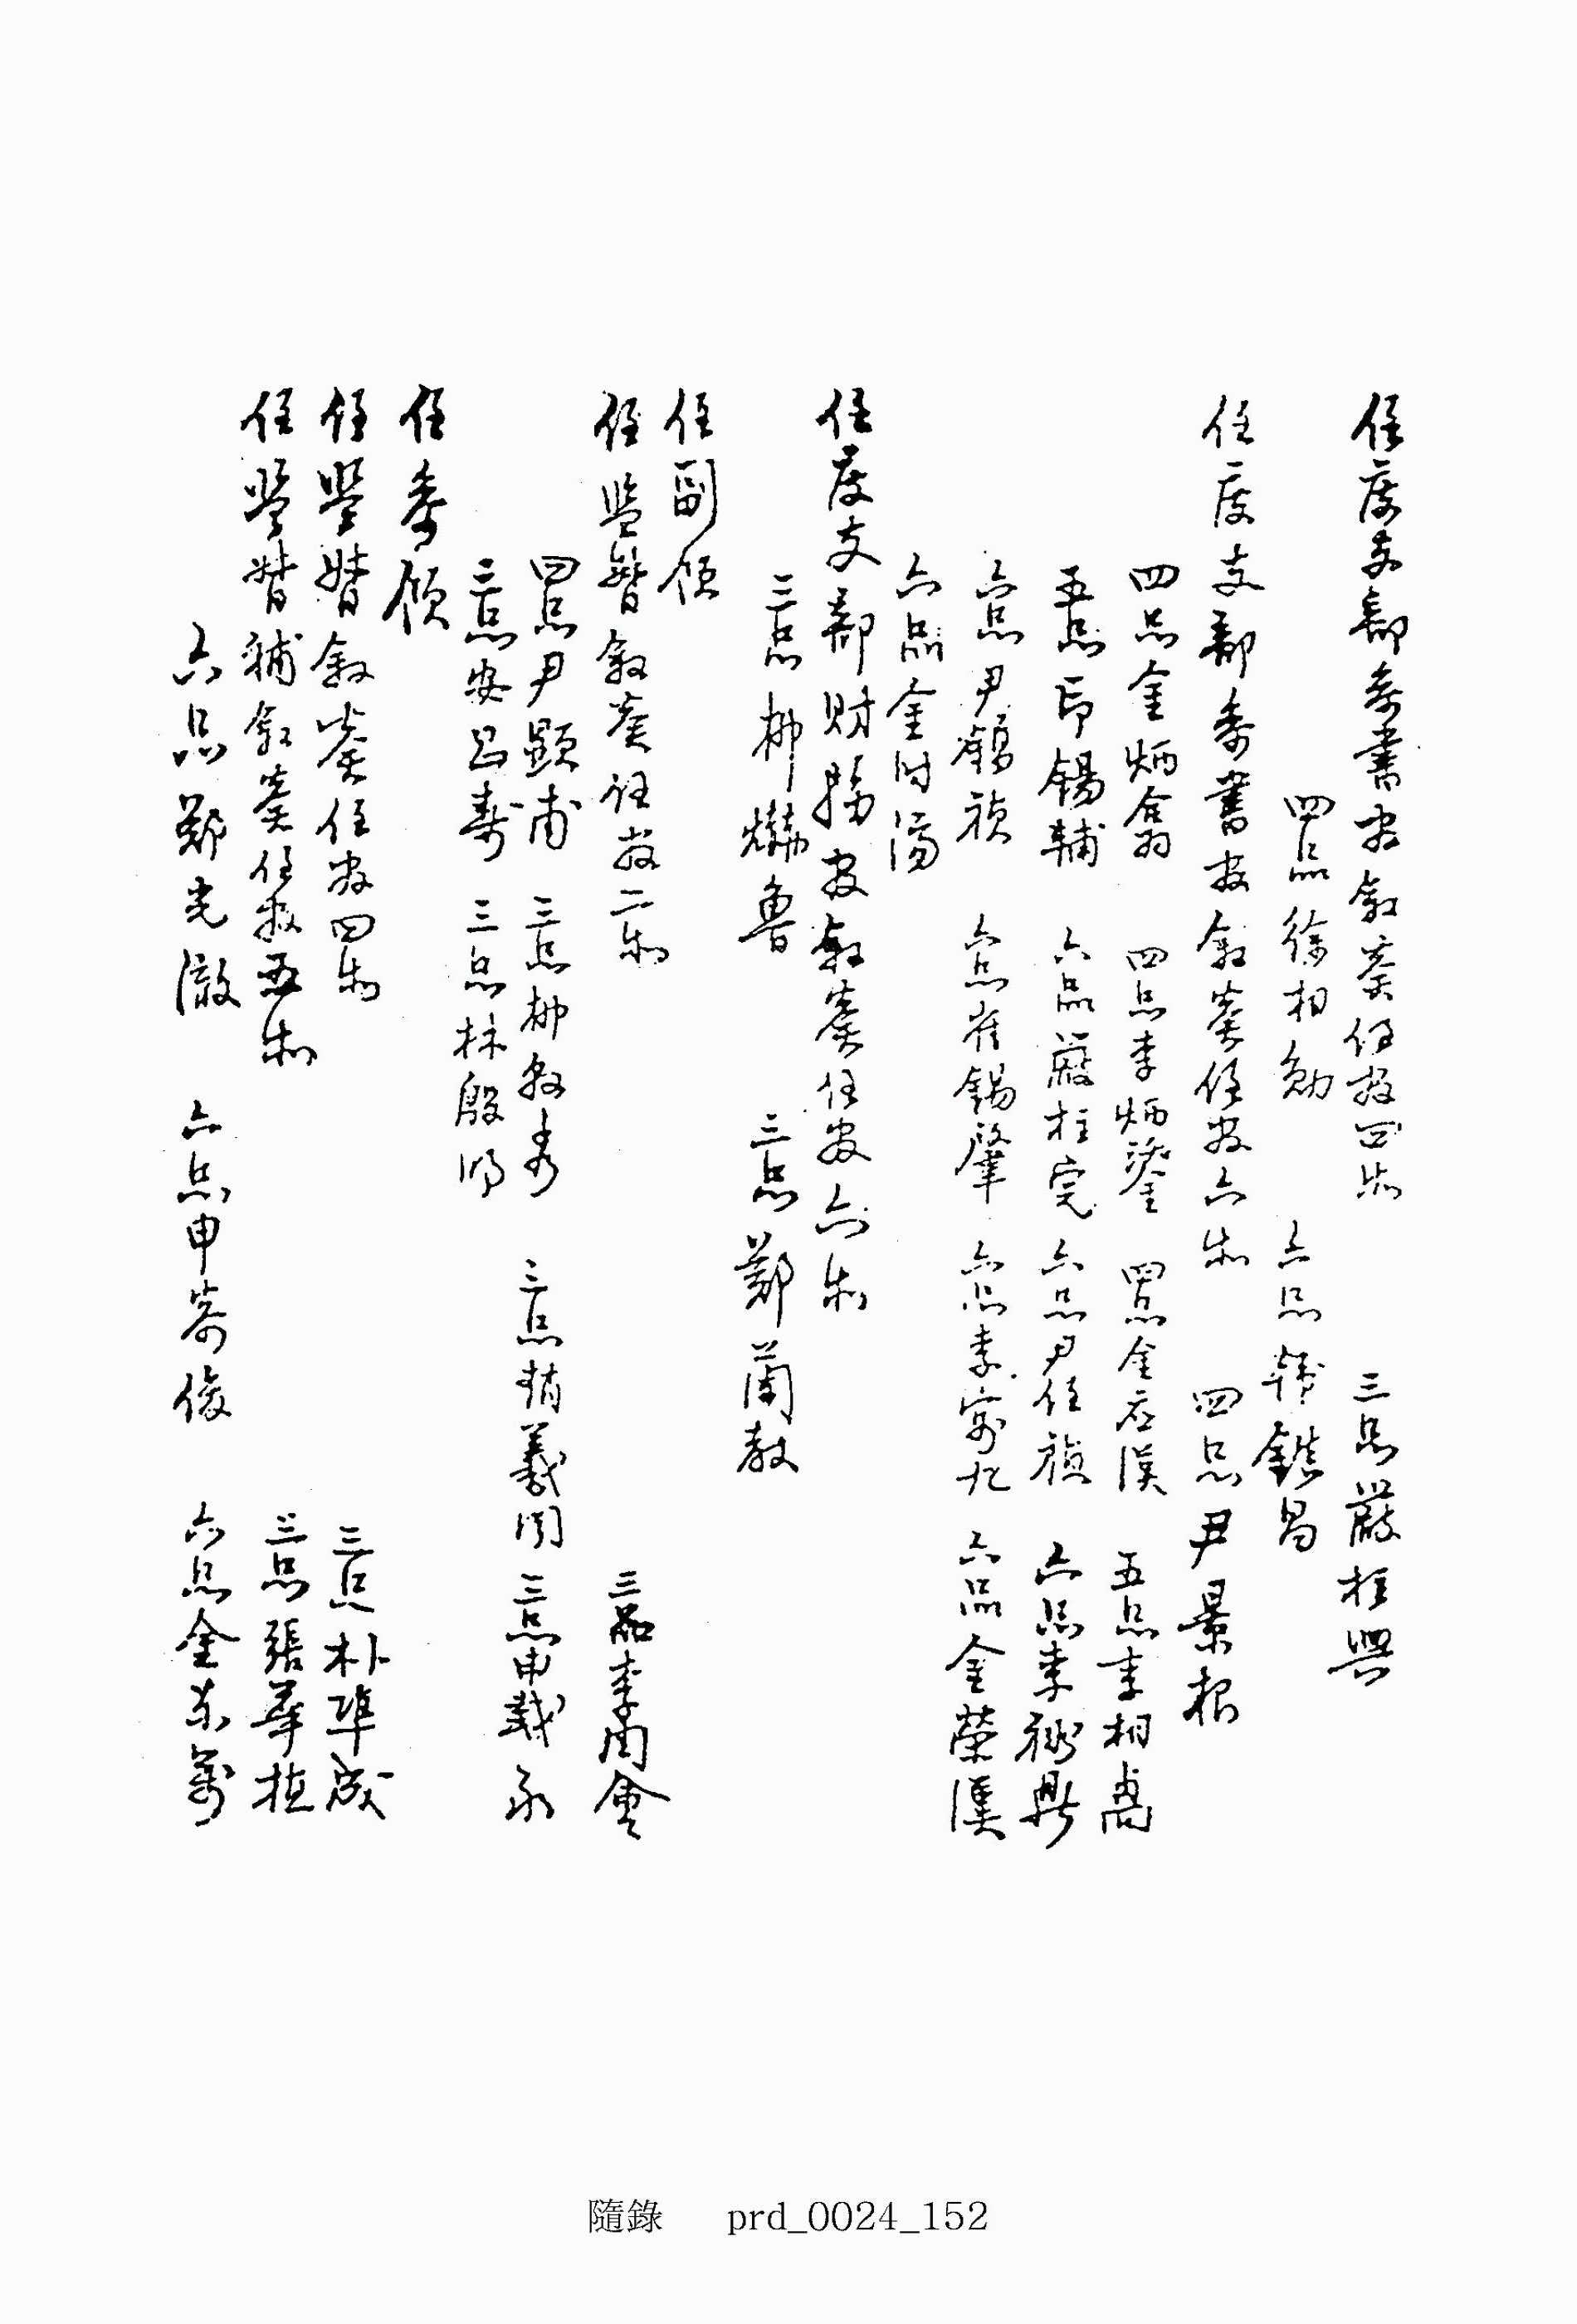 任度支部參書官敍奏任官四等 三品嚴柱興
四品徐相勛 六品韓鎮昌
任度支部參書官敍奏任官六等 四品尹景根
四品金炳翕 四品李炳瑬 四品金応漢 五品李相卨
五品印錫輔 六品嚴柱完 六品尹任禎 六品李
六品尹鶴禎 六品崔錫肇 六品李寅九 六品金榮漢
六品金
任度支部財務官敍奏任官六等
三品柳爀魯 三品鄭蘭教
任副領
任監督敍奏任官二等 三品李周會
四品尹顯甫 三品柳 秀 三品 羲 三品申載永
三品安昌壽 三品林殷明
任參領
任監督敍奏任官四等 三品朴準成
任監督補敍奏任官五等 三品張華植
六品鄭光 六品申 俊 六品金東萬
隨錄 prd_0024_152